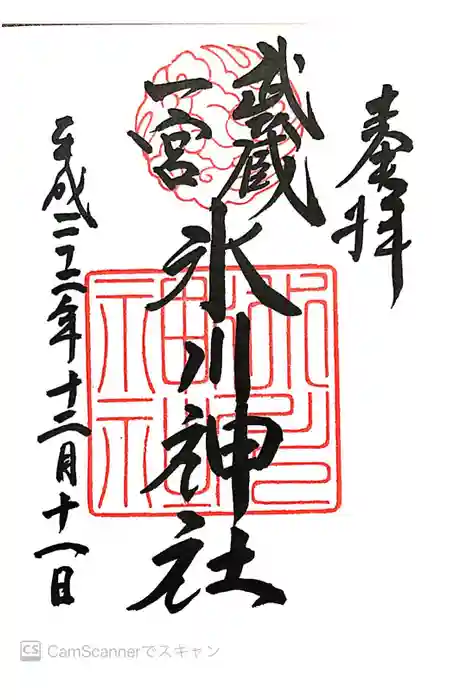 奉拝
武蔵
一宮
氷川神社
氷川
神社
平成二十二年十二月十八日
CS CamScannerでスキャン